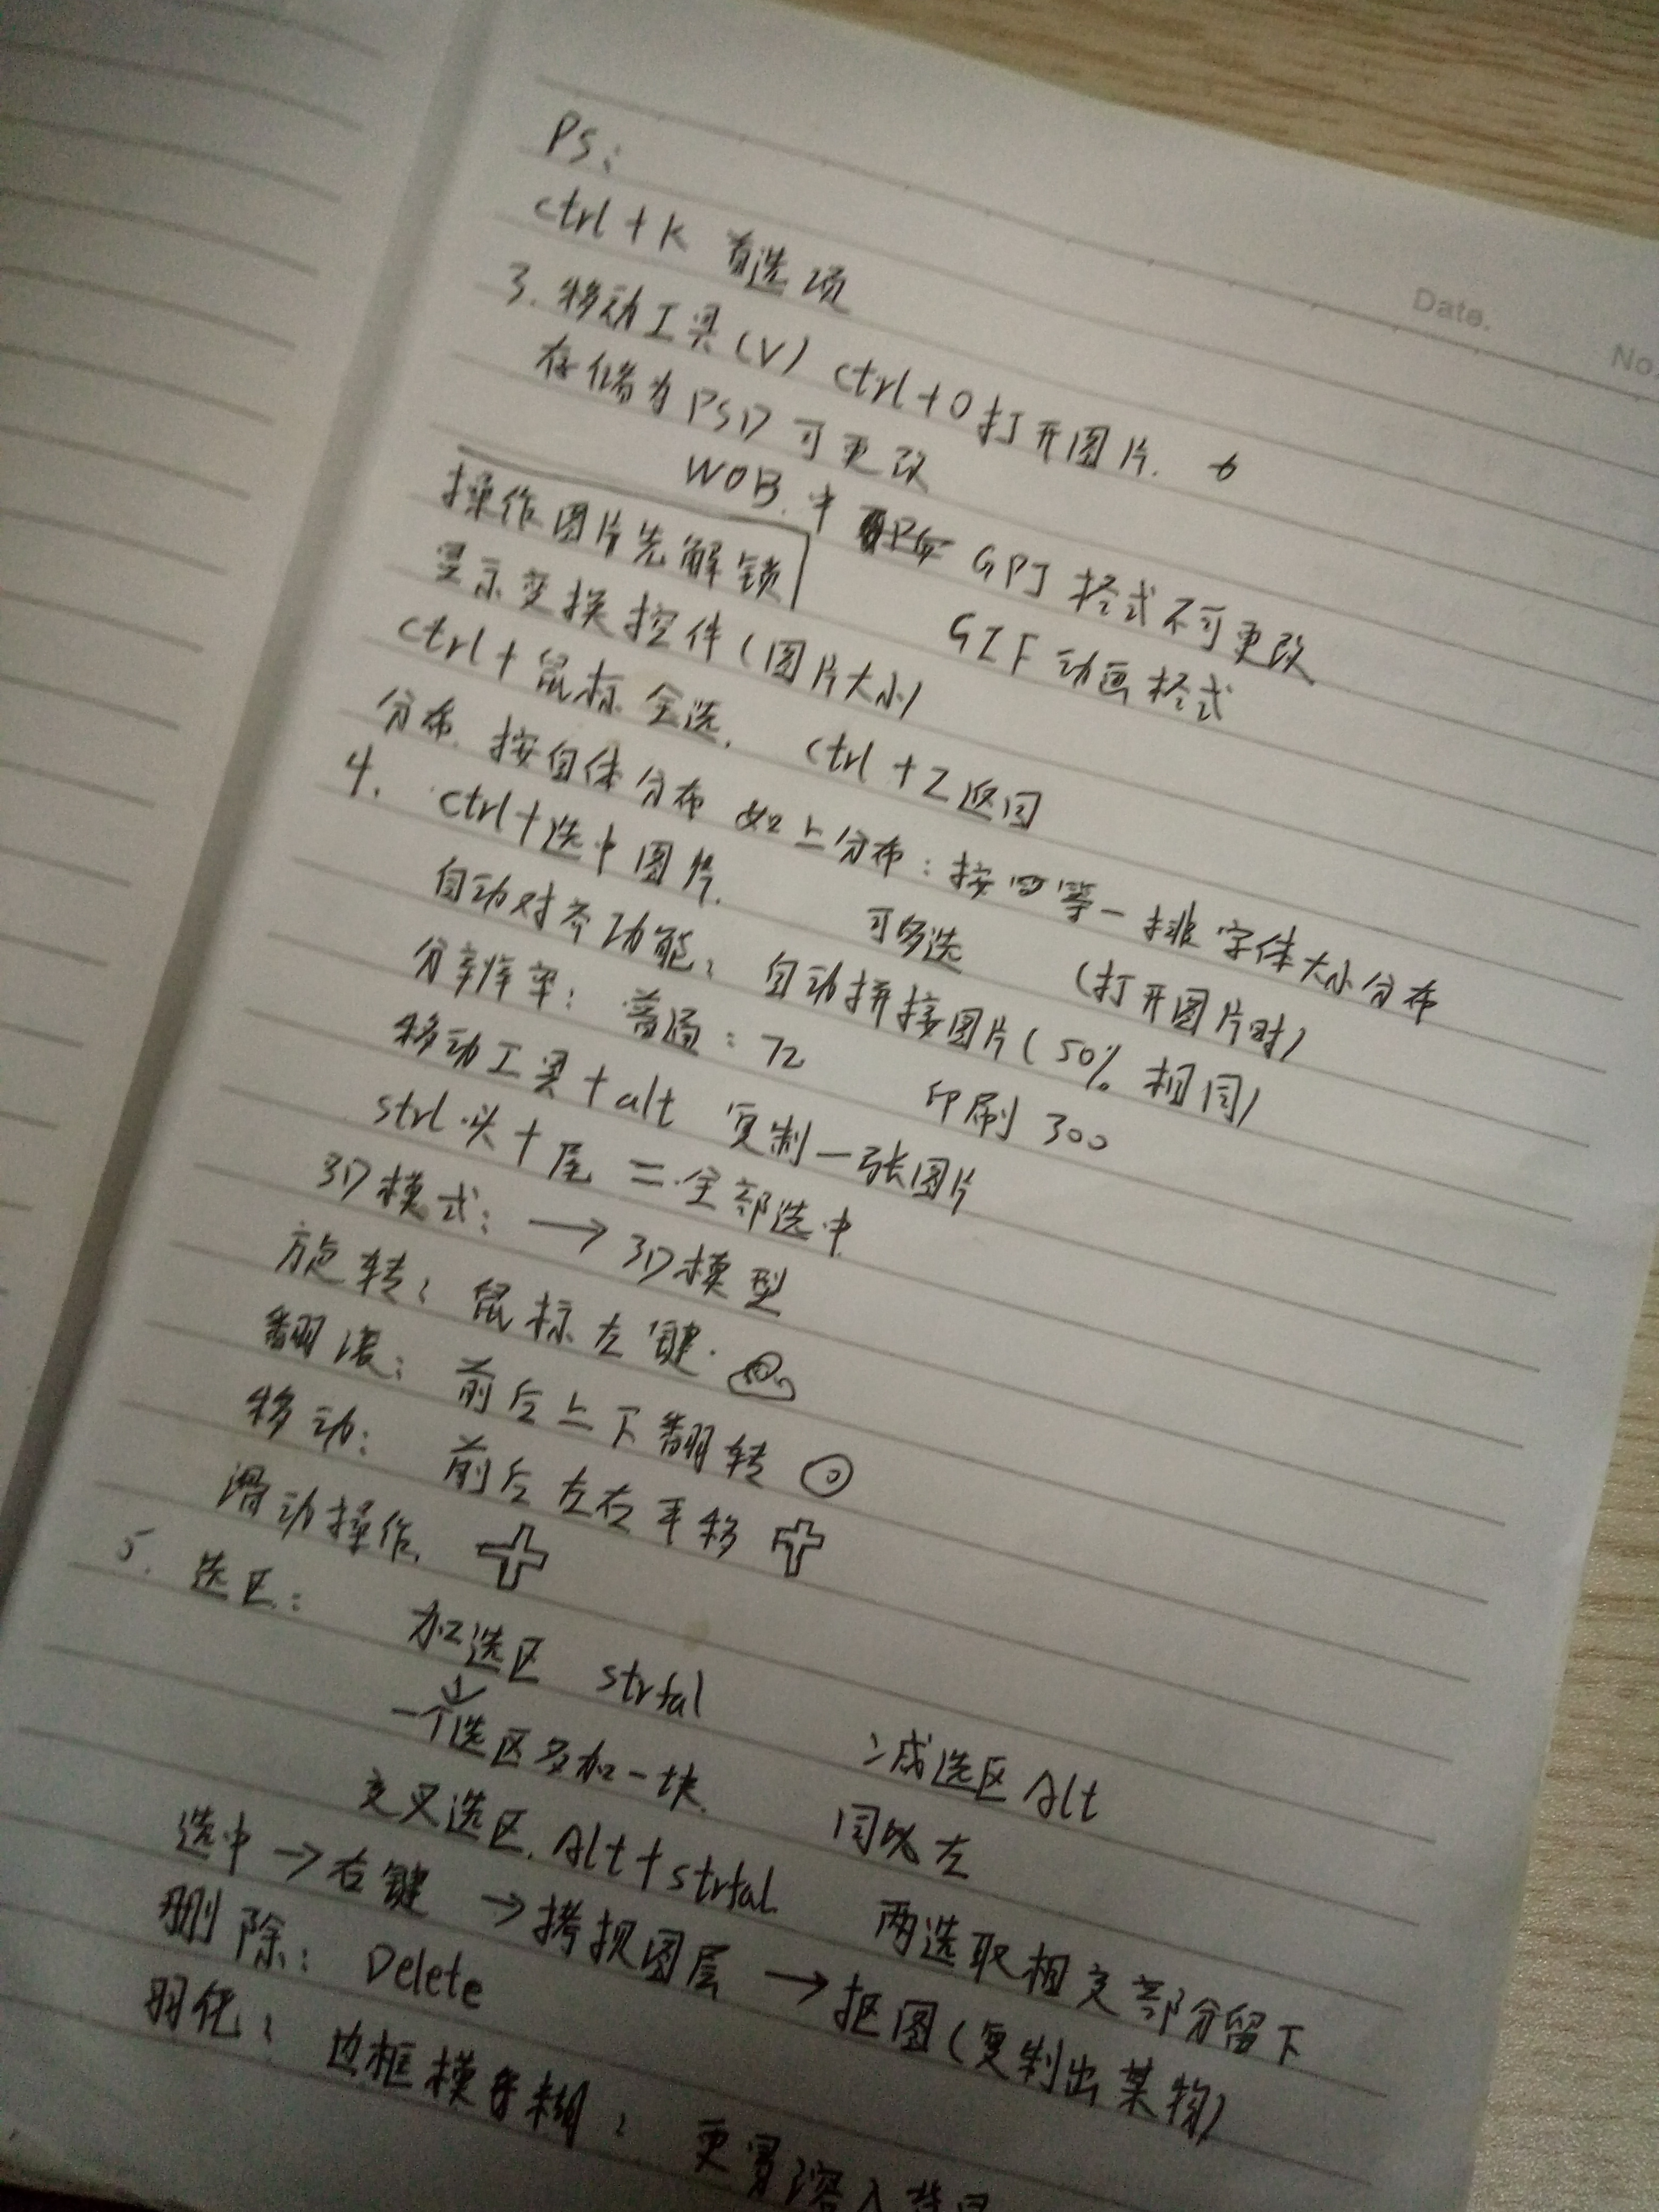 Date.
No.
PS:
ctrl+K 首选项
3. 移动工具(V) ctrl+O打开图片.
存储为PSD可更改
WOB. GPJ 格式不可更改
操作图片先解锁 GIF 动画格式
显示变换控件(图片大小)
ctrl+鼠标 全选. ctrl+Z返回
分布. 按自体分布 如上分布: 按 等一排字体大小分布
4. ctrl+选中图片. 可多选 (打开图片时)
自动对齐功能: 自动拼接图片(50% 相同)
分辨率: 普通: 72 印刷 300
移动工具+alt 复制一张图片
strl 头+尾=全部选中
3D模式: → 3D模型
旋转: 鼠标左键.
翻滚: 前后上下翻转
移动: 前后左右平移
滑动操作.
5. 选区: 加选区 strfal 减选区 Alt
↓
一个选区多加一块. 同 左
交叉选区. Alt+strfal 两选取相交部分留下
选中→右键→拷贝图层→抠图(复制出某物)
删除: Delete
羽化: 边框模糊: 更 溶入背景